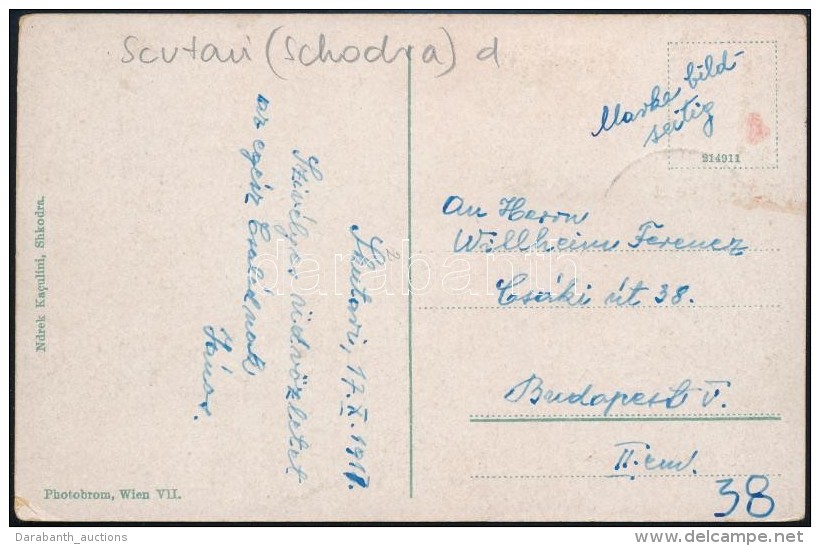 Scutari (Schodra) d
Marke bild-
seitig
214911
Skutari, 17.X.1917.
Szivélyes üdvözletet
az egész családnak
János.
An Herrn
Willheim Ferencz
Csáki út 38.
Budapest V.
II. em.
38
Ndrek Kaçulini, Shkodra.
Photobrom, Wien VII.
darabanth
Darabanth_auctions
www.delcampe.net